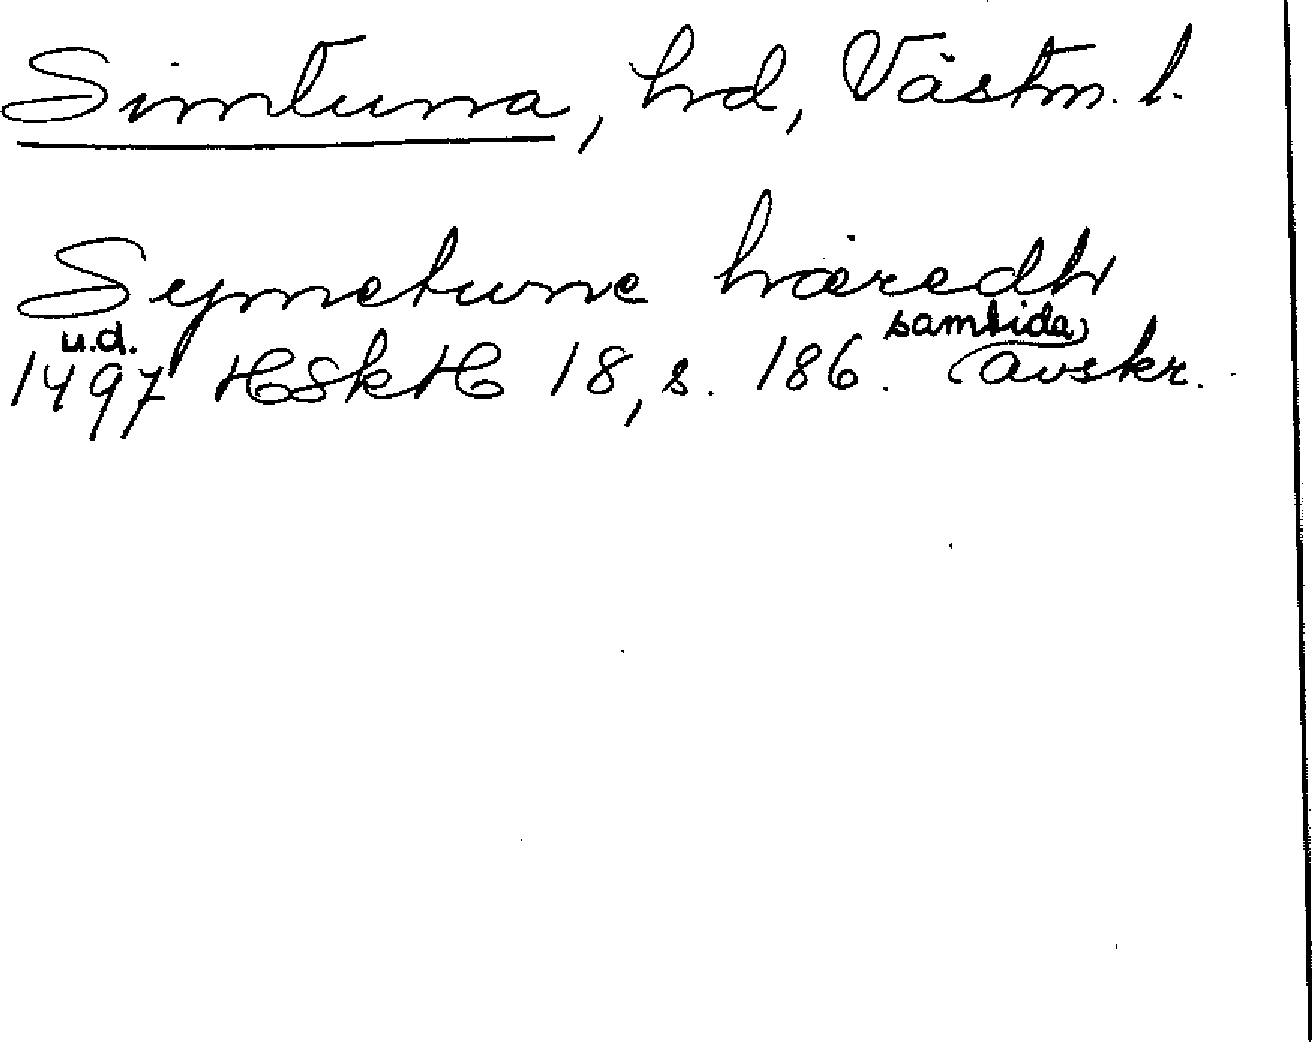 Simtuna, hd, Västm. l.
Symetune hæredh
u.d. samtida
1497 HSkH 18, s. 186. avskr.